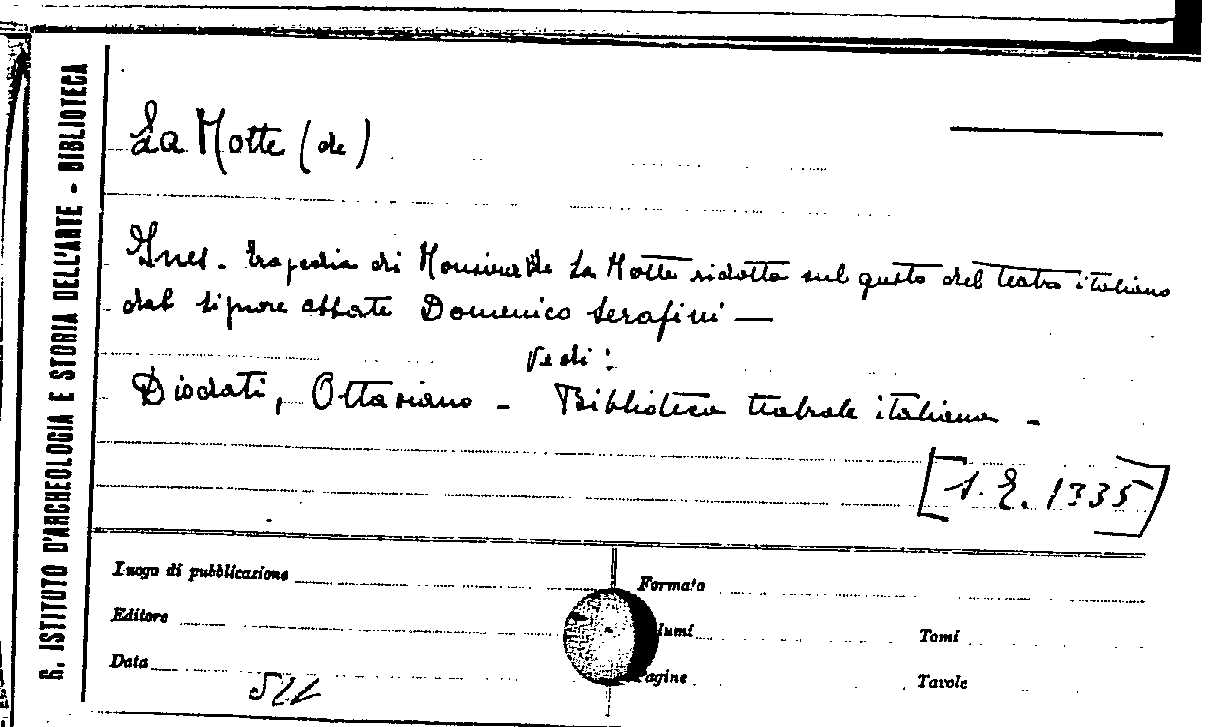 R. ISTITUTO D'ARCHEOLOGIA E STORIA DELL'ARTE - BIBLIOTECA
La Motte (de)
Ines. tragedia di Monsieur De La Motte ridotta sul gusto del teatro italiano
dal signore abbate Domenico Serafini —
Vedi:
Diodati, Ottaviano - Biblioteca teatrale italiana -
[1. E. 1335]
Luogo di pubblicazione
Formato
Editore
lumi
Tomi
Data
Pagine
Tavole